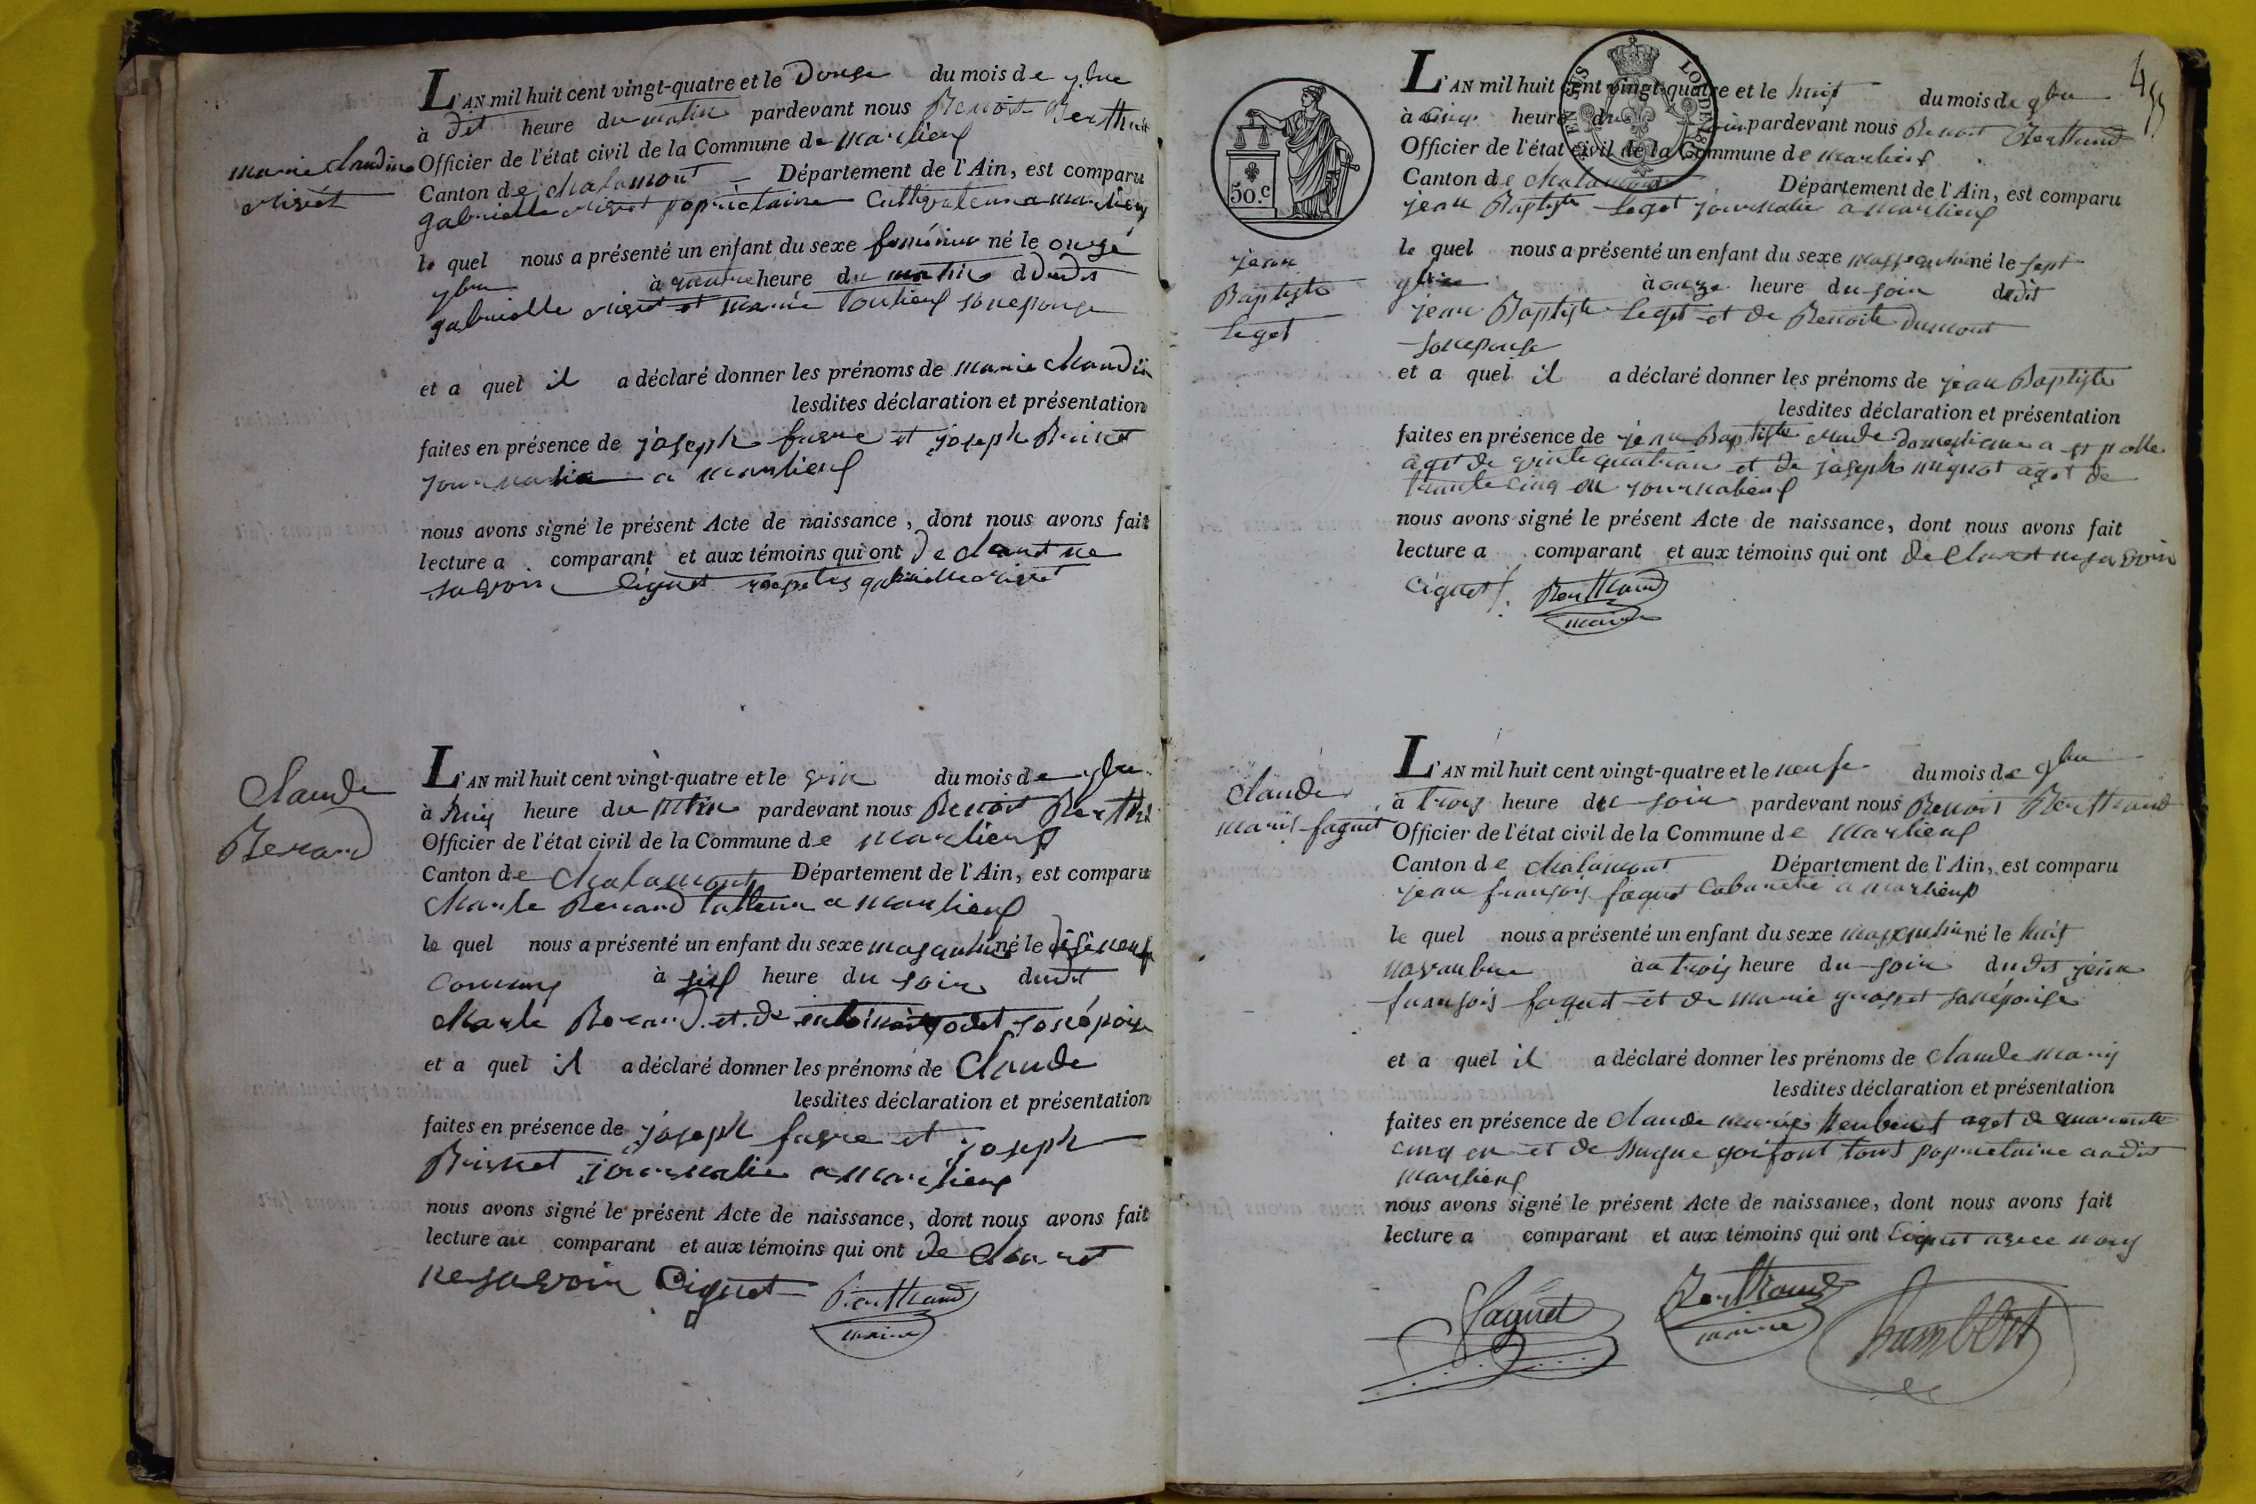 L'AN mil huit cent vingt-quatre et le Douse du mois de 9bre
à dit heure du matin pardevant nous Benoit Berthait
Officier de l'état civil de la Commune de Marlieux
Canton de Chalamont Département de l'Ain, est comparu
gabrielle popriétaire Cultivateur a marlieux
le quel nous a présenté un enfant du sexe feminin né le onze
9bre à quatre heure du matin dudit
gabrielle et marie son epouse
et a quel il a déclaré donner les prénoms de marie Claudin
lesdites déclaration et présentation
faites en présence de joseph favre et joseph Brisset
journalie a marlieux
nous avons signé le présent Acte de naissance, dont nous avons fait
lecture a comparant et aux témoins qui ont declaret ne
savoir Cignet gabrielle
marie Claudine
Claude
Berard
L'AN mil huit cent vingt-quatre et le vin du mois de 9bre
à huis heure du mtin pardevant nous Benoit Berthd
Officier de l'état civil de la Commune de marlieux
Canton de Chalamont Département de l'Ain, est comparu
Charle Berard talleur a marlieux
le quel nous a présenté un enfant du sexe masqulin né le diseneuf
Courant à sis heure du soir dudit
Charle Berard et de godet son épouse
et a quel il a déclaré donner les prénoms de Claude
lesdites déclaration et présentation
faites en présence de joseph favre et joseph
Brisset journalie a marlieux
nous avons signé le présent Acte de naissance, dont nous avons fait
lecture au comparant et aux témoins qui ont declaret
ne savoir Cignet Berthaud
maire
455
50 c
DIEU EN SUS LOI DE
L'AN mil huit cent vingt-quatre et le huit du mois de 9bre
à Cinq heure du soir pardevant nous Benoit Berthaud
Officier de l'état civil de la Commune de Marlieux
Canton de Chalamont Département de l'Ain, est comparu
jean Baptiste Leget journalie a marlieux
le quel nous a présenté un enfant du sexe né le sept
9bre à onze heure du soir dudit
jean Baptiste Leget et de Benoite dumont
son epouse
et a quel il a déclaré donner les prénoms de jean Baptiste
lesdites déclaration et présentation
faites en présence de jean Baptiste domestique a
aget de quatran et de joseph mignot aget de
trante cinq an journalieux
nous avons signé le présent Acte de naissance, dont nous avons fait
lecture a comparant et aux témoins qui ont declaret ne savoir
Cignet Berthaud
maire
jean
Baptiste
Leget
Claude
Marie faguet
L'AN mil huit cent vingt-quatre et le neufe du mois de 9bre
à trois heure du soir pardevant nous Benoit Berthaud
Officier de l'état civil de la Commune de Marlieux
Canton de Chalamont Département de l'Ain, est comparu
jean fransois faguet Cabaretié a marlieux
le quel nous a présenté un enfant du sexe né le huit
novanbre à a trois heure du soir dudit jean
fransois faguet et de marie grosset son épouse
et a quel il a déclaré donner les prénoms de Claude marie
lesdites déclaration et présentation
faites en présence de Claude marie aget de quarante
cinq an et de hugue goifont tous popriétaire audit
Marlieux
nous avons signé le présent Acte de naissance, dont nous avons fait
lecture a comparant et aux témoins qui ont Cignet avec nous
Faguet Berthaud humbert
maire